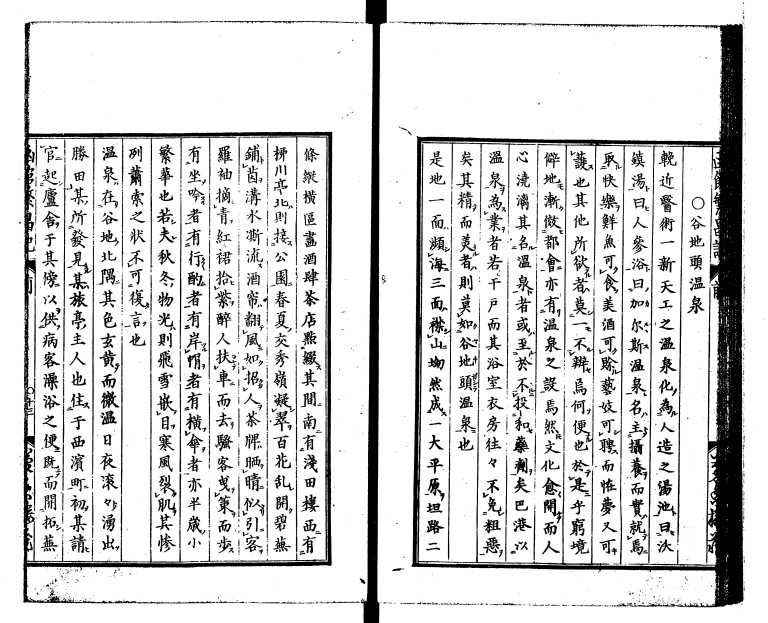 〇谷地頭温泉
輓近醫術一新天工之温泉化為人造之湯池曰沃
鎮湯曰人參浴曰加尔斯温泉名主攝養而實就焉
取快樂鮮魚可食美酒可賒藝妓可聘而恠夢又可
護也其他所欲者莫一不辦烏何便也於是乎窮境
僻地漸倣都會亦有温泉之設焉然文化愈開而人
心澆漓其名温泉者或至於不投和藥劑矣巴港以
温泉為業者若干戸而其浴室衣房往々不免粗惡
矣其精而美者則莫如谷地頭温泉也
是地一面瀕海三面襟山坳然成一大平原坦路二
條縱横區畫酒肆茶店點綴其間南有淺田樓西有
柳川亭北則接公園春夏交秀嶺凝翠百花乱開碧蕪
鋪茵溝水澌流酒帘翻風如招人茶牌晒晴似引客
羅袖摘青紅裙拾紫醉人扶車而去騷客曳筇而歩
有坐吟者有行酌者有岸帽者有横傘者亦半歳小
繁華也若夫秋冬物光則飛雪嵌目寒風裂肌其慘
列蕭索之状不可復言也
温泉在谷地北隅其色玄黄而微温日夜滚々湧出
勝田某所發見某旅亭主人也住于西濱町初其請
官起廬舎于其傍以供病客澡浴之便既而開拓蕪